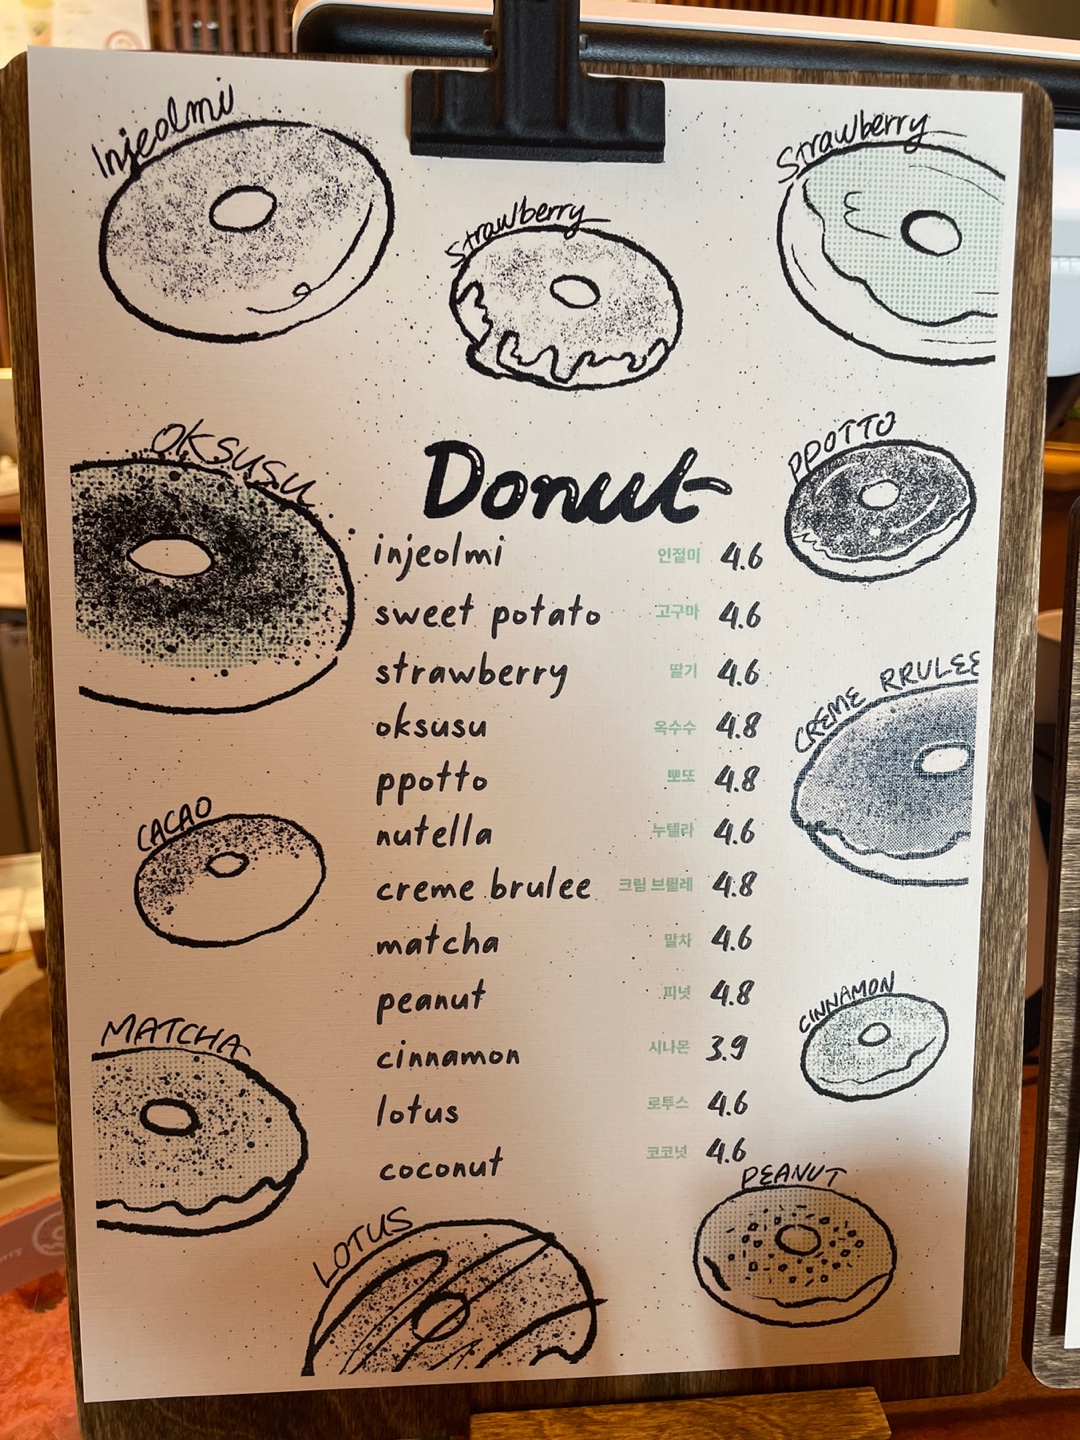 Injeolmi
Strawberry
Strawberry
OKSUSU
PPOTTO
Donut
injeolmi 인절미 4.6
sweet potato 고구마 4.6
strawberry 딸기 4.6
oksusu 옥수수 4.8
ppotto 뽀또 4.8
nutella 누텔라 4.6
creme brulee 크림 브륄레 4.8
matcha 말차 4.6
peanut 피넛 4.8
cinnamon 시나몬 3.9
lotus 로투스 4.6
coconut 코코넛 4.6
CREME RRULEE
CACAO
CINNAMON
MATCHA
PEANUT
LOTUS